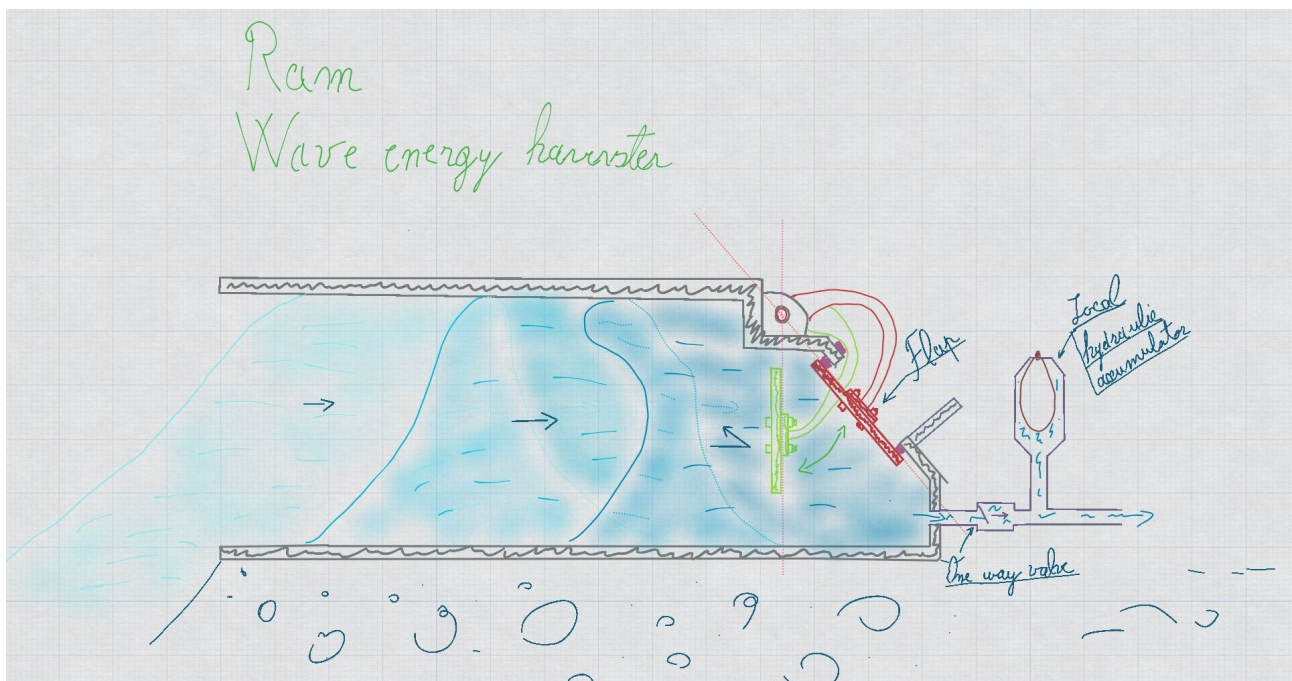 Ram
Wave energy harvster
Flap
Local
hydraulic
accumulator
One way valve